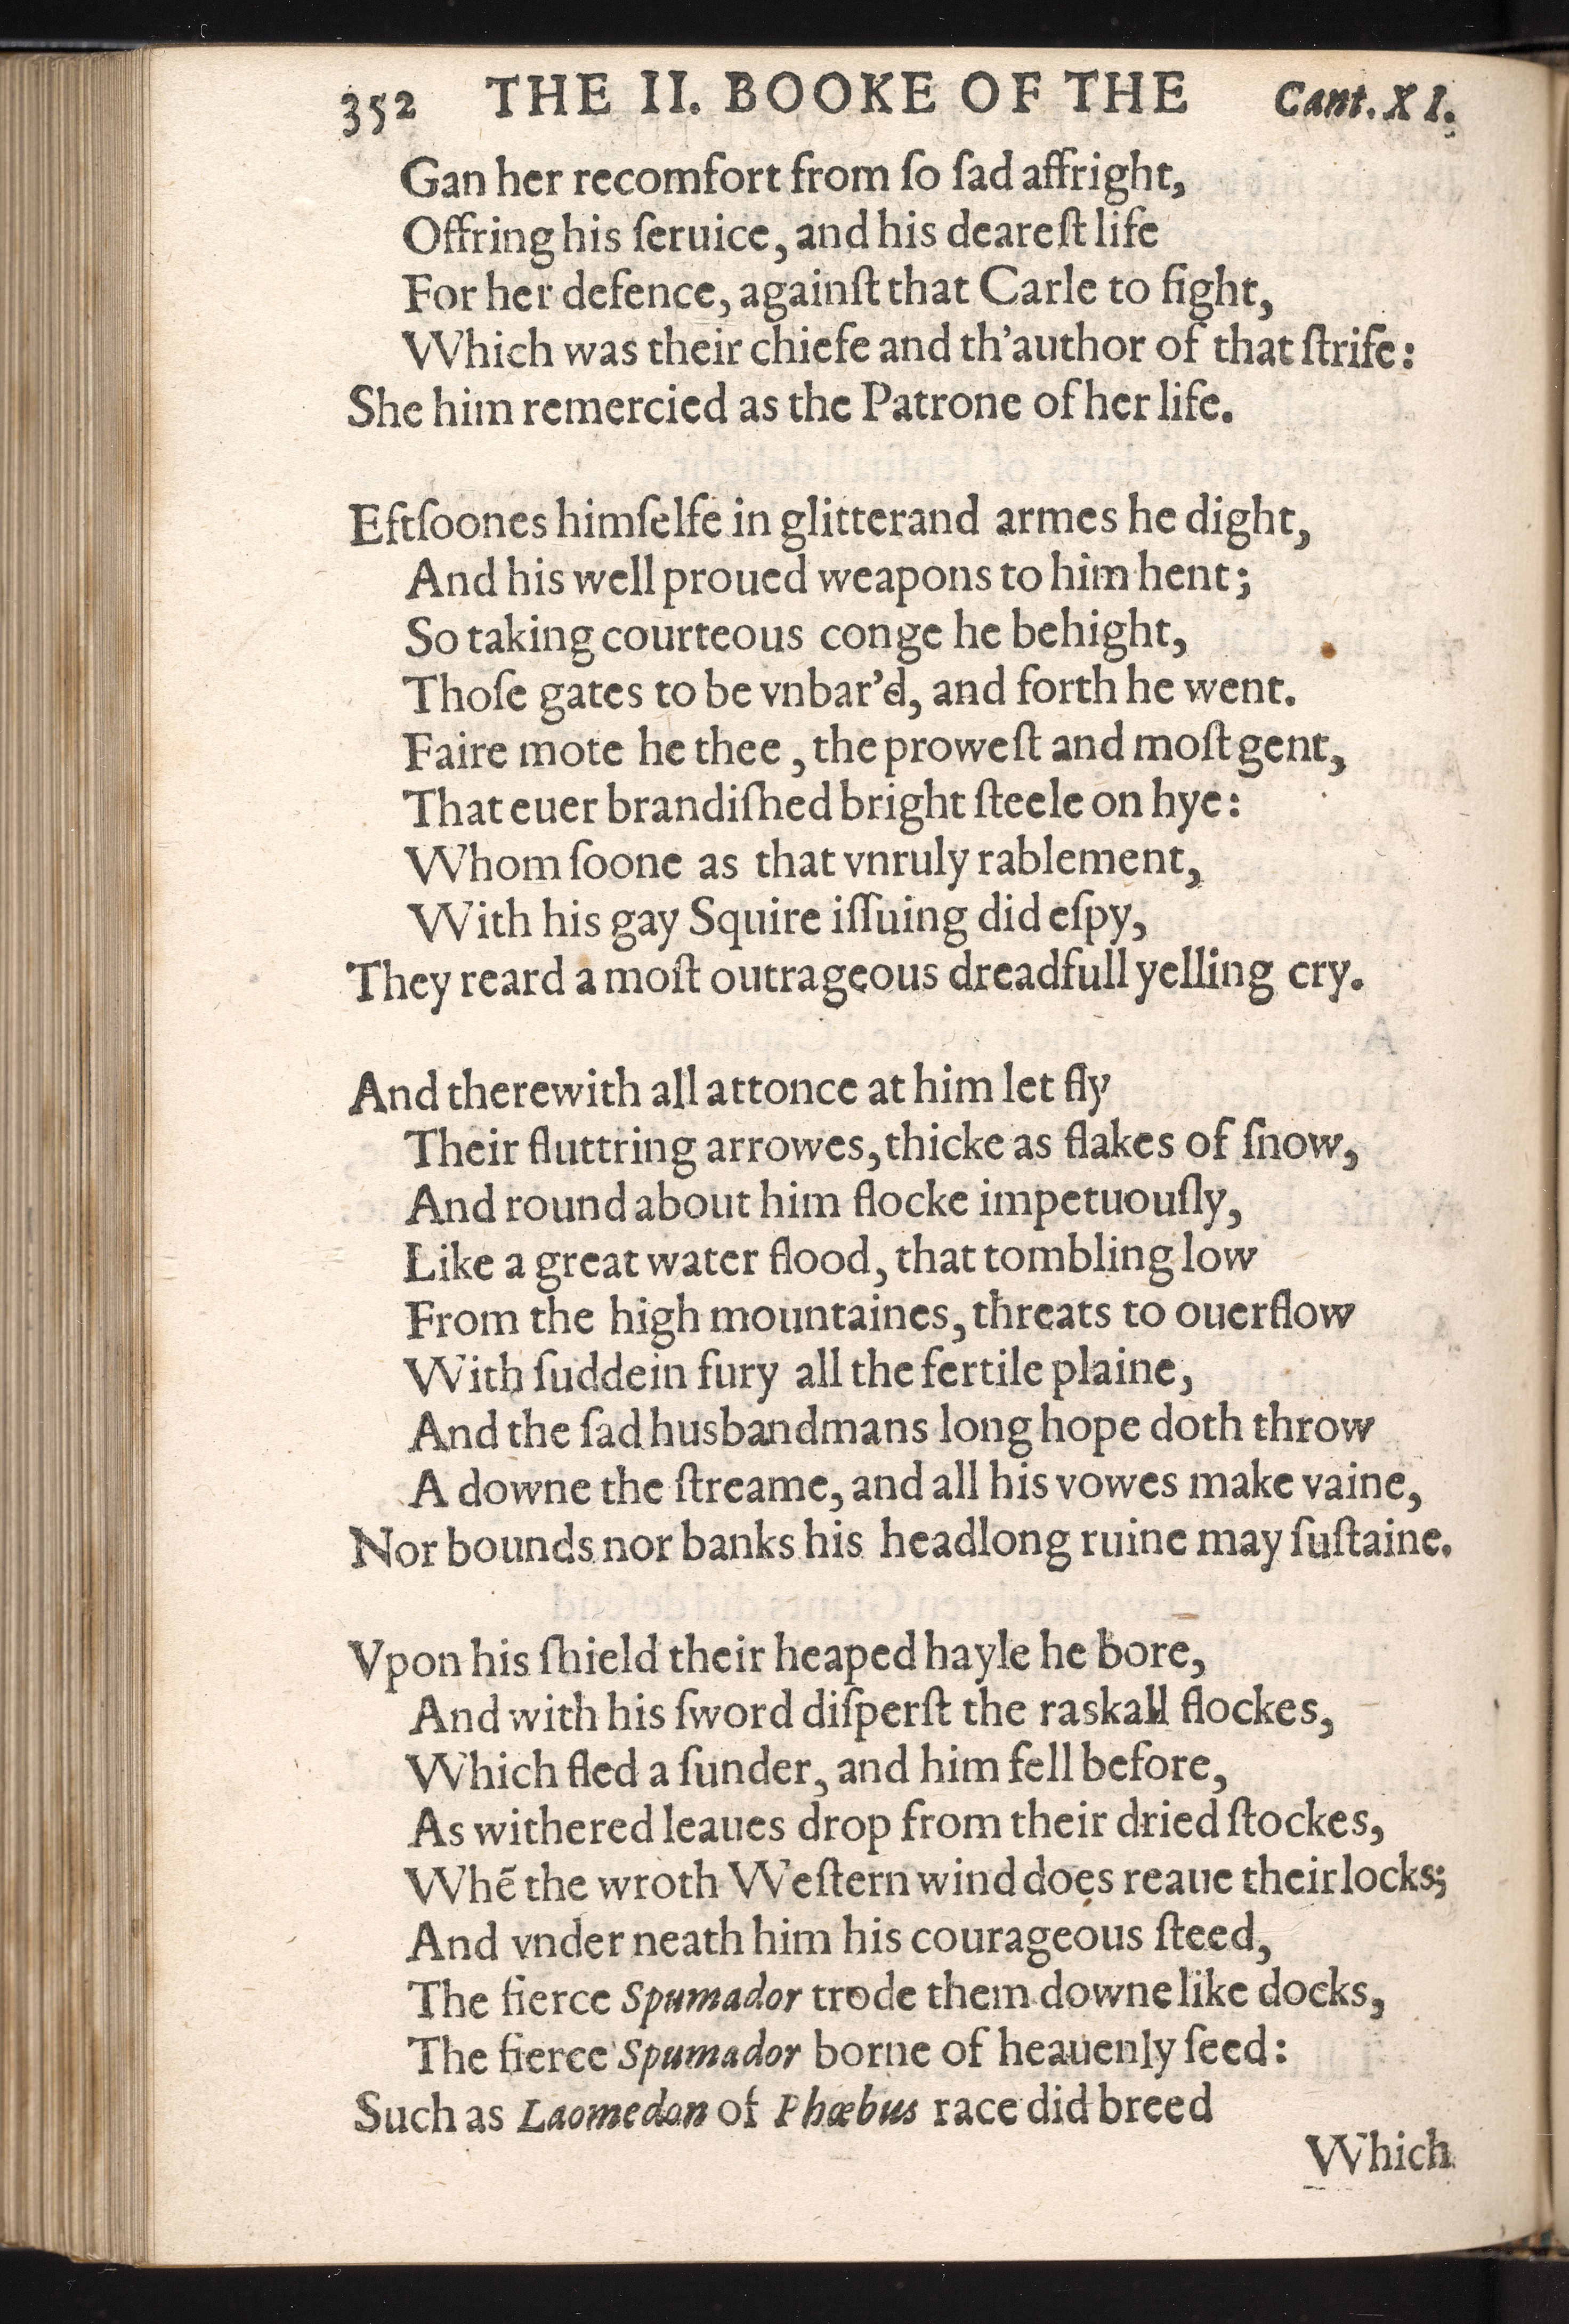 352 THE II. BOOKE OF THE Cant. XI.
Gan her recomfort from ſo ſad affright,
Offring his ſeruice, and his deareſt life
For her defence, againſt that Carle to fight,
Which was their chiefe and th'author of that ſtrife:
She him remercied as the Patrone of her life.
Eftſoones himſelfe in glitterand armes he dight,
And his well proued weapons to him hent;
So taking courteous conge he behight,
Thoſe gates to be vnbar'd, and forth he went.
Faire mote he thee, the proweſt and moſt gent,
That euer brandiſhed bright ſteele on hye:
Whom ſoone as that vnruly rablement,
With his gay Squire iſſuing did eſpy,
They reard a moſt outrageous dreadfull yelling cry.
And therewith all attonce at him let fly
Their fluttring arrowes, thicke as flakes of ſnow,
And round about him flocke impetuouſly,
Like a great water flood, that tombling low
From the high mountaines, threats to ouerflow
With ſuddein fury all the fertile plaine,
And the ſad husbandmans long hope doth throw
A downe the ſtreame, and all his vowes make vaine,
Nor bounds nor banks his headlong ruine may ſuſtaine.
Vpon his ſhield their heaped hayle he bore,
And with his ſword diſperſt the raskall flockes,
Which fled a ſunder, and him fell before,
As withered leaues drop from their dried ſtockes,
Whẽ the wroth Weſtern wind does reaue their locks;
And vnder neath him his courageous ſteed,
The fierce Spumador trode them downe like docks,
The fierce Spumador borne of heauenly ſeed:
Such as Laomedon of Phœbus race did breed
Which